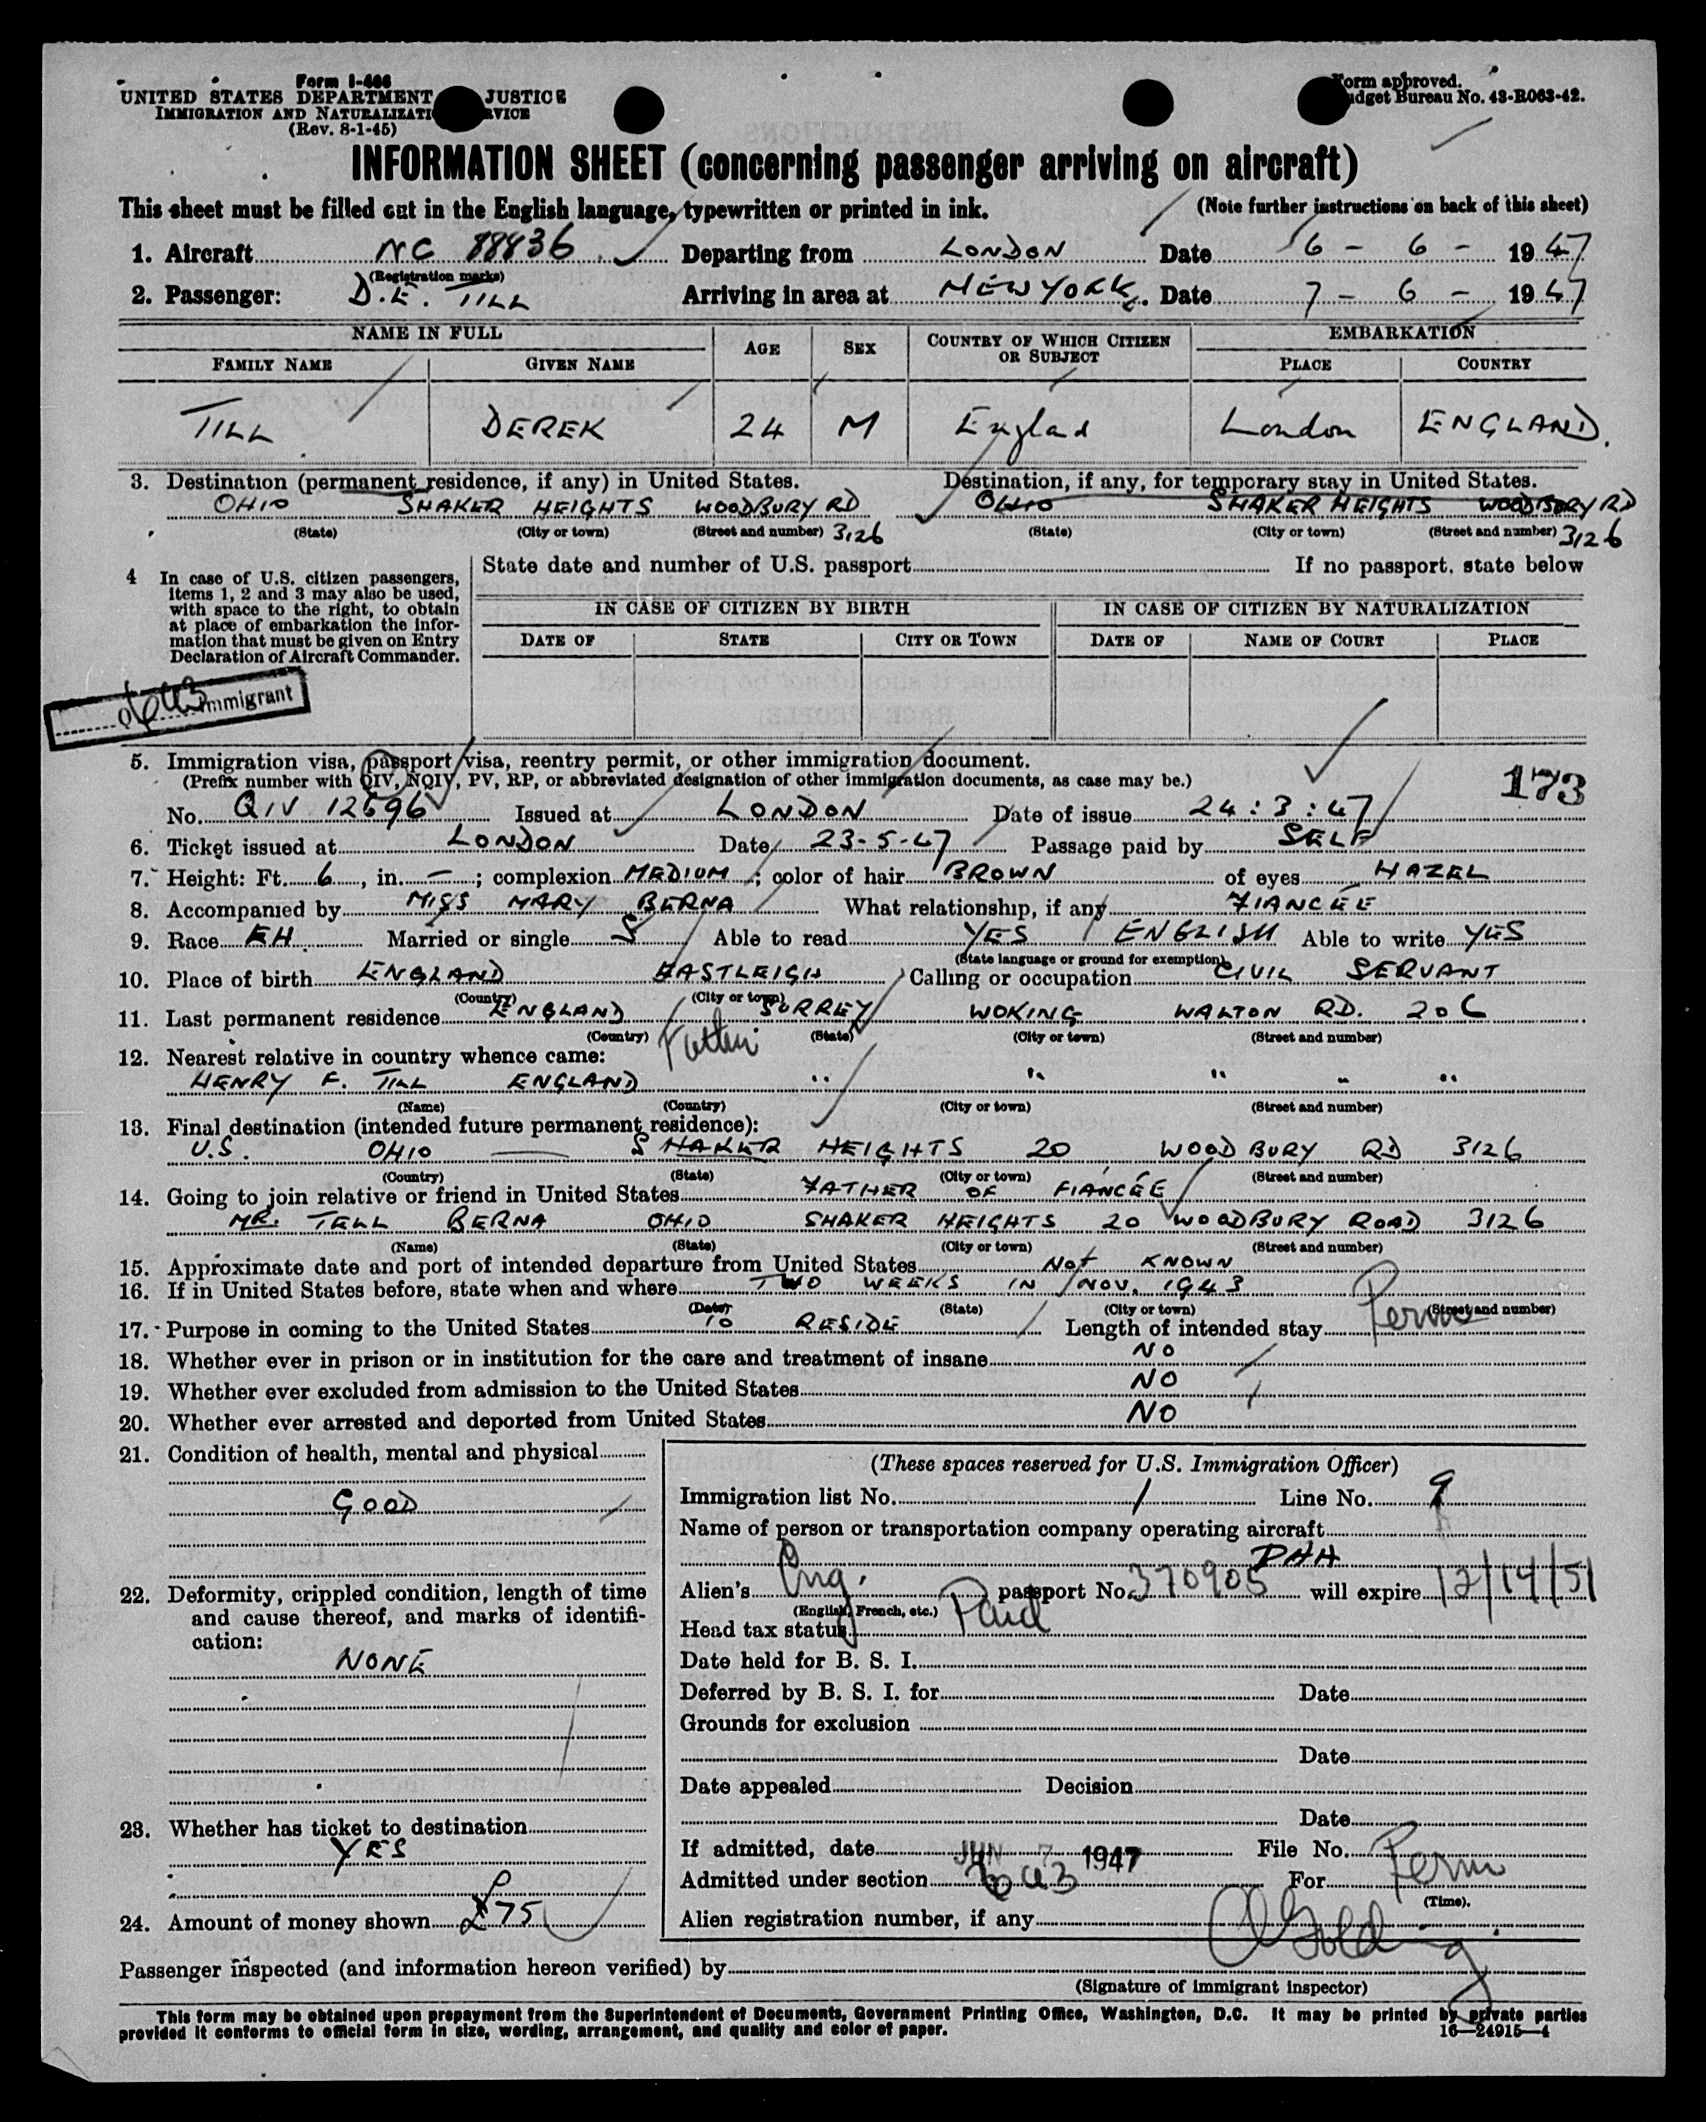 Form I-466
UNITED STATES DEPARTMENT JUSTICE
IMMIGRATION AND NATURALIZATI RVICE
(Rev. 8-1-45)
Form approved.
Budget Bureau No. 43-R063-42.
INFORMATION SHEET (concerning passenger arriving on aircraft)
This sheet must be filled out in the English language, typewritten or printed in ink. (Note further instructions on back of this sheet)
1. Aircraft NC 88836 Departing from LONDON Date 6 - 6 - 1947
(Registration marks)
2. Passenger: D.E. TILL Arriving in area at NEW YORK. Date 7 - 6 - 1947
NAME IN FULL AGE SEX COUNTRY OF WHICH CITIZEN OR SUBJECT EMBARKATION
FAMILY NAME GIVEN NAME PLACE COUNTRY
TILL DEREK 24 M England London ENGLAND.
3. Destination (permanent residence, if any) in United States. Destination, if any, for temporary stay in United States.
OHIO SHAKER HEIGHTS WOODBURY RD OHIO SHAKER HEIGHTS WOODBURY RD
(State) (City or town) (Street and number) 3126 (State) (City or town) (Street and number) 3126
4 In case of U.S. citizen passengers,
items 1, 2 and 3 may also be used,
with space to the right, to obtain
at place of embarkation the infor-
mation that must be given on Entry
Declaration of Aircraft Commander.
State date and number of U.S. passport If no passport, state below
IN CASE OF CITIZEN BY BIRTH IN CASE OF CITIZEN BY NATURALIZATION
DATE OF STATE CITY OR TOWN DATE OF NAME OF COURT PLACE
6a3 immigrant
5. Immigration visa, passport visa, reentry permit, or other immigration document.
(Prefix number with QIV, NQIV, PV, RP, or abbreviated designation of other immigration documents, as case may be.)
173
No. QIV 12596 Issued at LONDON Date of issue 24:3:47
6. Ticket issued at LONDON Date 23-5-47 Passage paid by SELF
7. Height: Ft. 6, in. —; complexion MEDIUM; color of hair BROWN of eyes HAZEL
8. Accompanied by MISS MARY BERNA What relationship, if any FIANCÉE
9. Race EH Married or single S Able to read YES ENGLISH Able to write YES
(State language or ground for exemption)
10. Place of birth ENGLAND EASTLEIGH Calling or occupation CIVIL SERVANT
(Country) (City or town)
11. Last permanent residence ENGLAND SURREY WOKING WALTON RD. 206
(Country) (State) (City or town) (Street and number)
12. Nearest relative in country whence came: Father
HENRY F. TILL ENGLAND " " " " "
(Name) (Country) (City or town) (Street and number)
13. Final destination (intended future permanent residence):
U.S. OHIO — SHAKER HEIGHTS 20, WOODBURY RD 3126
(Country) (State) (City or town) (Street and number)
14. Going to join relative or friend in United States FATHER OF FIANCÉE
MR. TELL BERNA OHIO SHAKER HEIGHTS 20 WOODBURY ROAD 3126
(Name) (State) (City or town) (Street and number)
15. Approximate date and port of intended departure from United States Not KNOWN
16. If in United States before, state when and where TWO WEEKS IN NOV. 1943
(Date) (State) (City or town) (Street and number)
17. Purpose in coming to the United States TO RESIDE Length of intended stay Perm
18. Whether ever in prison or in institution for the care and treatment of insane NO
19. Whether ever excluded from admission to the United States NO
20. Whether ever arrested and deported from United States NO
21. Condition of health, mental and physical
GOOD
22. Deformity, crippled condition, length of time
and cause thereof, and marks of identifi-
cation:
NONE
23. Whether has ticket to destination
YES
24. Amount of money shown £75
(These spaces reserved for U.S. Immigration Officer)
Immigration list No. 1 Line No. 9
Name of person or transportation company operating aircraft
PAA
Alien's Eng. passport No. 370905 will expire 12/14/51
(English, French, etc.)
Head tax status Paid
Date held for B. S. I.
Deferred by B. S. I. for Date
Grounds for exclusion
Date
Date appealed Decision
Date
If admitted, date JUN 7 1947 File No.
Admitted under section 6a3 For Perm
(Time).
Alien registration number, if any
Passenger inspected (and information hereon verified) by Golding
(Signature of immigrant inspector)
This form may be obtained upon prepayment from the Superintendent of Documents, Government Printing Office, Washington, D.C. It may be printed by private parties
provided it conforms to official form in size, wording, arrangement, and quality and color of paper. 16—24915-4